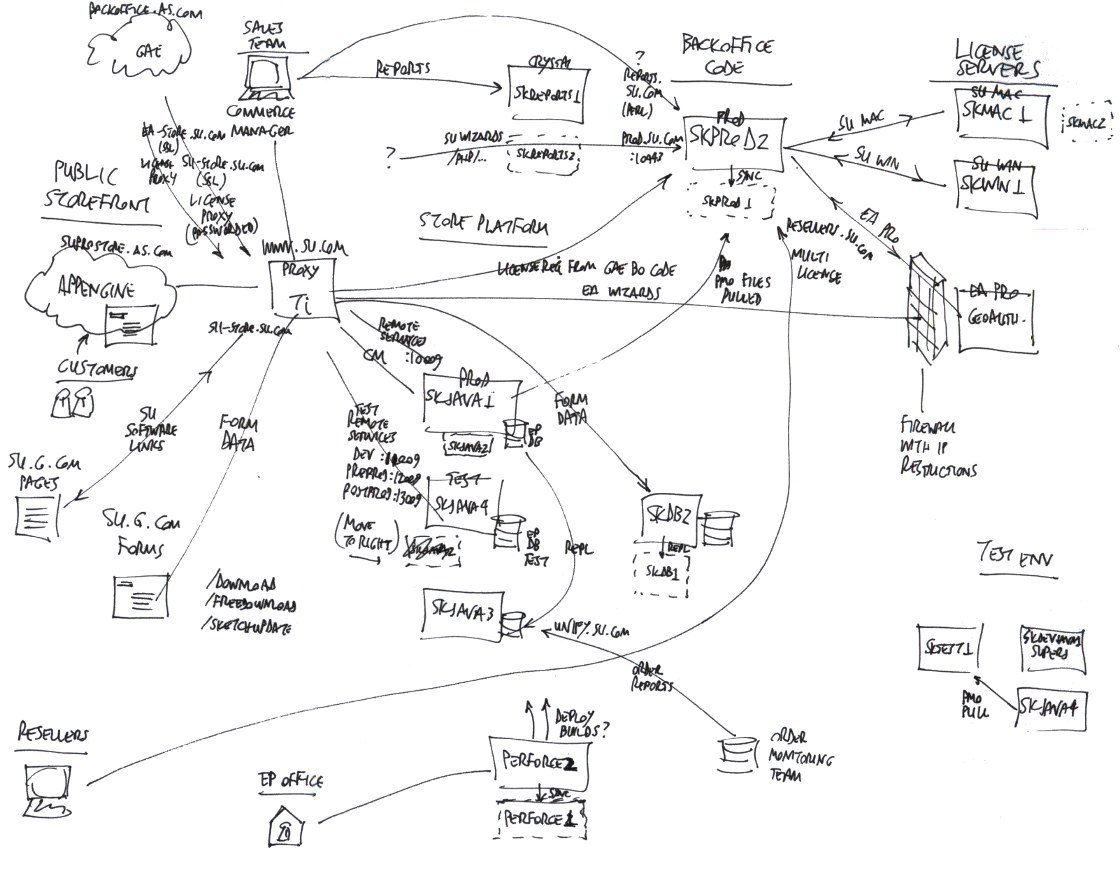 BACKOFFICE.AS.COM
GAE
SALES
TEAM
COMMERCE
MANAGER
REPORTS
CRYSTAL
SKREPORTS1
SKREPORTS2
?
SU WIZARDS
/PHP/...
?
REPORTS.
SU.COM
(PERL)
PROD.SU.COM
:10443
BACKOFFICE
CODE
PROD
SKPROD2
SYNC
SKPROD1
LICENSE
SERVERS
SU MAC
SKMAC1
SKMAC2
SU MAC
SU WIN
SU WIN
SKWIN1
EA-STORE.SU.COM
(SSL)
LICENSE
PROXY
SU-STORE.SU.COM
(SSL)
LICENSE
PROXY
(PASSWORDED)
PUBLIC
STOREFRONT
SUPROSTORE.AS.COM
APPENGINE
CUSTOMERS
WWW.SU.COM
PROXY
T1
SU-STORE.SU.COM
STORE PLATFORM
LICENSE REQ FROM GAE BO CODE
EA WIZARDS
PMO FILES
PULLED
RESELLERS.SU.COM
MULTI
LICENSE
EA PRO
EA PRO
GEOAUTH
FIREWALL
WITH IP
RESTRICTIONS
REMOTE
SERVICES
:10009
CM
PROD
SKJAVA1
SKJAVA2
EP
DB
FORM
DATA
SU
SOFTWARE
LINKS
FORM
DATA
TEST
REMOTE
SERVICES
DEV :11009
PREPROD:12009
POSTPROD:13009
(MOVE
TO RIGHT)
TEST
SKJAVA4
EP
DB
TEST
REPL
SKDB2
REPL
SKDB1
SU.G.COM
PAGES
SU.G.COM
FORMS
/DOWNLOAD
/FREEDOWNLOAD
/SKETCHUPDATE
SKJAVA3
UNIFY.SU.COM
ORDER
REPORTS
ORDER
MONITORING
TEAM
TEST ENV
SKTEST1
PMO
PULL
SKJAVA4
RESELLERS
EP OFFICE
DEPLOY
BUILDS?
PERFORCE2
SYNC
PERFORCE1